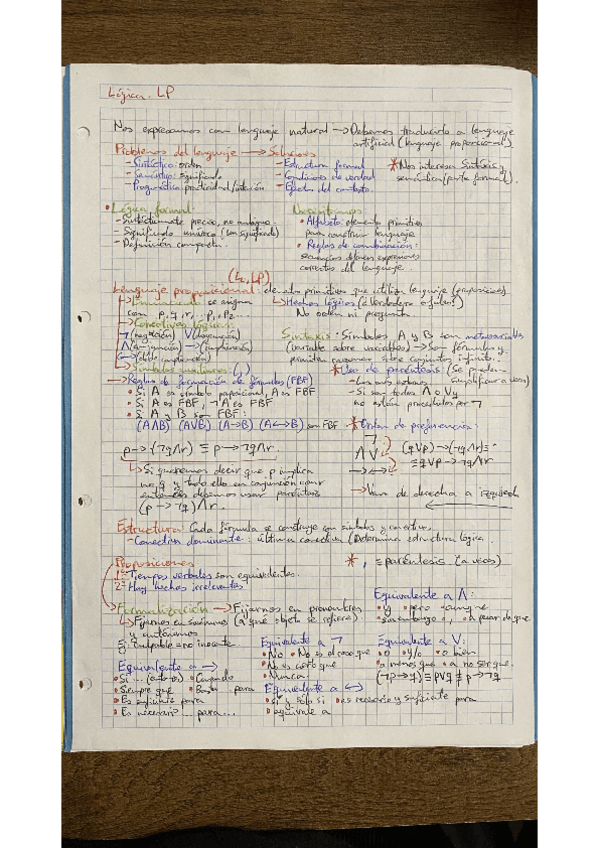 Lógica. LP
Nos expresamos con lenguaje natural → Debemos traducirlo a lenguaje
artificial (lenguaje proposicional).
Problemas del lenguaje → Soluciones
- Sintáctico: orden
- Semántico: significado
- Pragmática: practicidad/intención
- Estructura formal
- Condiciones de verdad
- Efectos del contexto.
* Nos interesa Sintaxis y
semántica (parte formal).
• Lógica formal:
- Sintácticamente precisa, no ambigua.
- Significado unívoco (un significado)
- Definición compacta.
Necesitamos:
• Alfabeto: elementos primitivos
para construir lenguaje
• Reglas de combinación:
correctas del lenguaje.
(L, LP)
Lenguaje proposicional: elementos primitivos que utiliza lenguaje (proposiciones).
→ Enunciados: se asigna
con p, q, r, ... p1, p2...
↳ Hechos lógicos (¿Verdadero o falso?)
No orden ni pregunta.
→ Conectivas lógicas:
¬ (negación) V (disyunción)
Λ (conjunción) → (implicación)
↔ (doble implicación)
→ Símbolos auxiliares (, )
Sintaxis: Símbolos A y B son metavariables
(variable sobre variables) → Son fórmulas y
permiten razonar sobre conjuntos infinitos.
→ Reglas de formación de fórmulas (FBF)
• Si A es símbolo proposicional, A es FBF
• Si A es FBF, ¬A es FBF
• Si A y B son FBF:
(AΛB) (AVB) (A→B) (A↔B) son FBF
* Uso de paréntesis (Se pueden
simplificar a veces)
- Si son todas Λ o V y
no están precedidas por ¬
* Orden de preferencia:
¬
Λ V
→ ↔
(qVp)→(¬qΛr)≡
≡ qVp→¬qΛr
p→(¬qΛr) ≡ p→¬qΛr
↳ Si queremos decir que p implica
no q y todo ello en conjunción con r
entonces debemos usar paréntesis
(p→¬q)Λr.
→ Van de derecha a izquierda
Estructura: Cada fórmula se construye con símbolos y conectivas.
- Conectiva dominante: última conectiva (Determina estructura lógica.
Proposiciones
1º Tiempos verbales son equivalentes.
2º Hay hechos irrelevantes.
* , ≡ paréntesis (a veces)
Formalización → Fijarnos en pronombres
↳ Fijarnos en sinónimos (a qué objeto se refiere)
y antónimos
Ej: culpable = no inocente
Equivalente a Λ:
• y • pero • aunque
• sin embargo • , • a pesar de que
Equivalente a ¬
• No • No es el caso que
• No es cierto que
• Nunca
Equivalente a V:
• o • y/o • o bien
• a menos que • a no ser que
Equivalente a →
• Si ... (entonces) • Cuando
• Siempre que • Basta para
• Es suficiente para
• Es necesario ... para ...
Equivalente a ↔
• Si y sólo si • es necesario y suficiente para
• equivale a